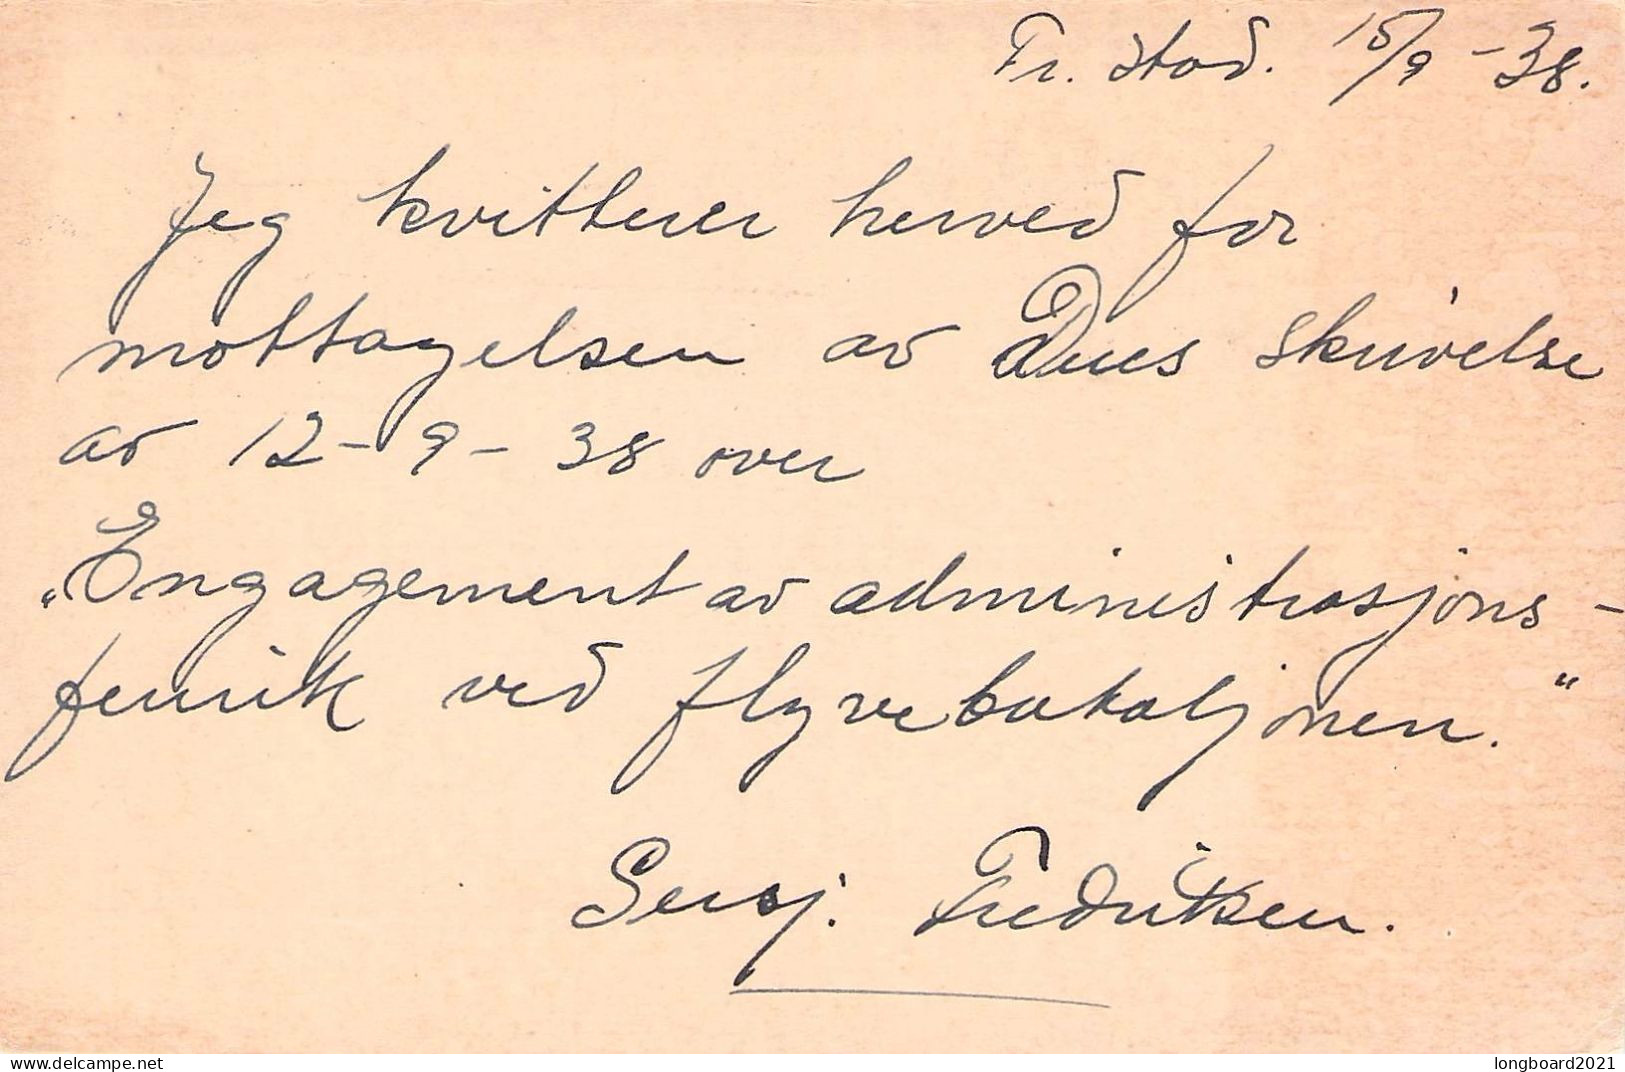 Fr. stad. 15/9 - 38.
Jeg kvitterer herved for
mottagelsen av Deres skrivelse
av 12-9-38 over
„Engagement av administrasjons-
fenrik ved flyvebataljonen."
Sersj. Fredriksen.
longboard2021
www.delcampe.net